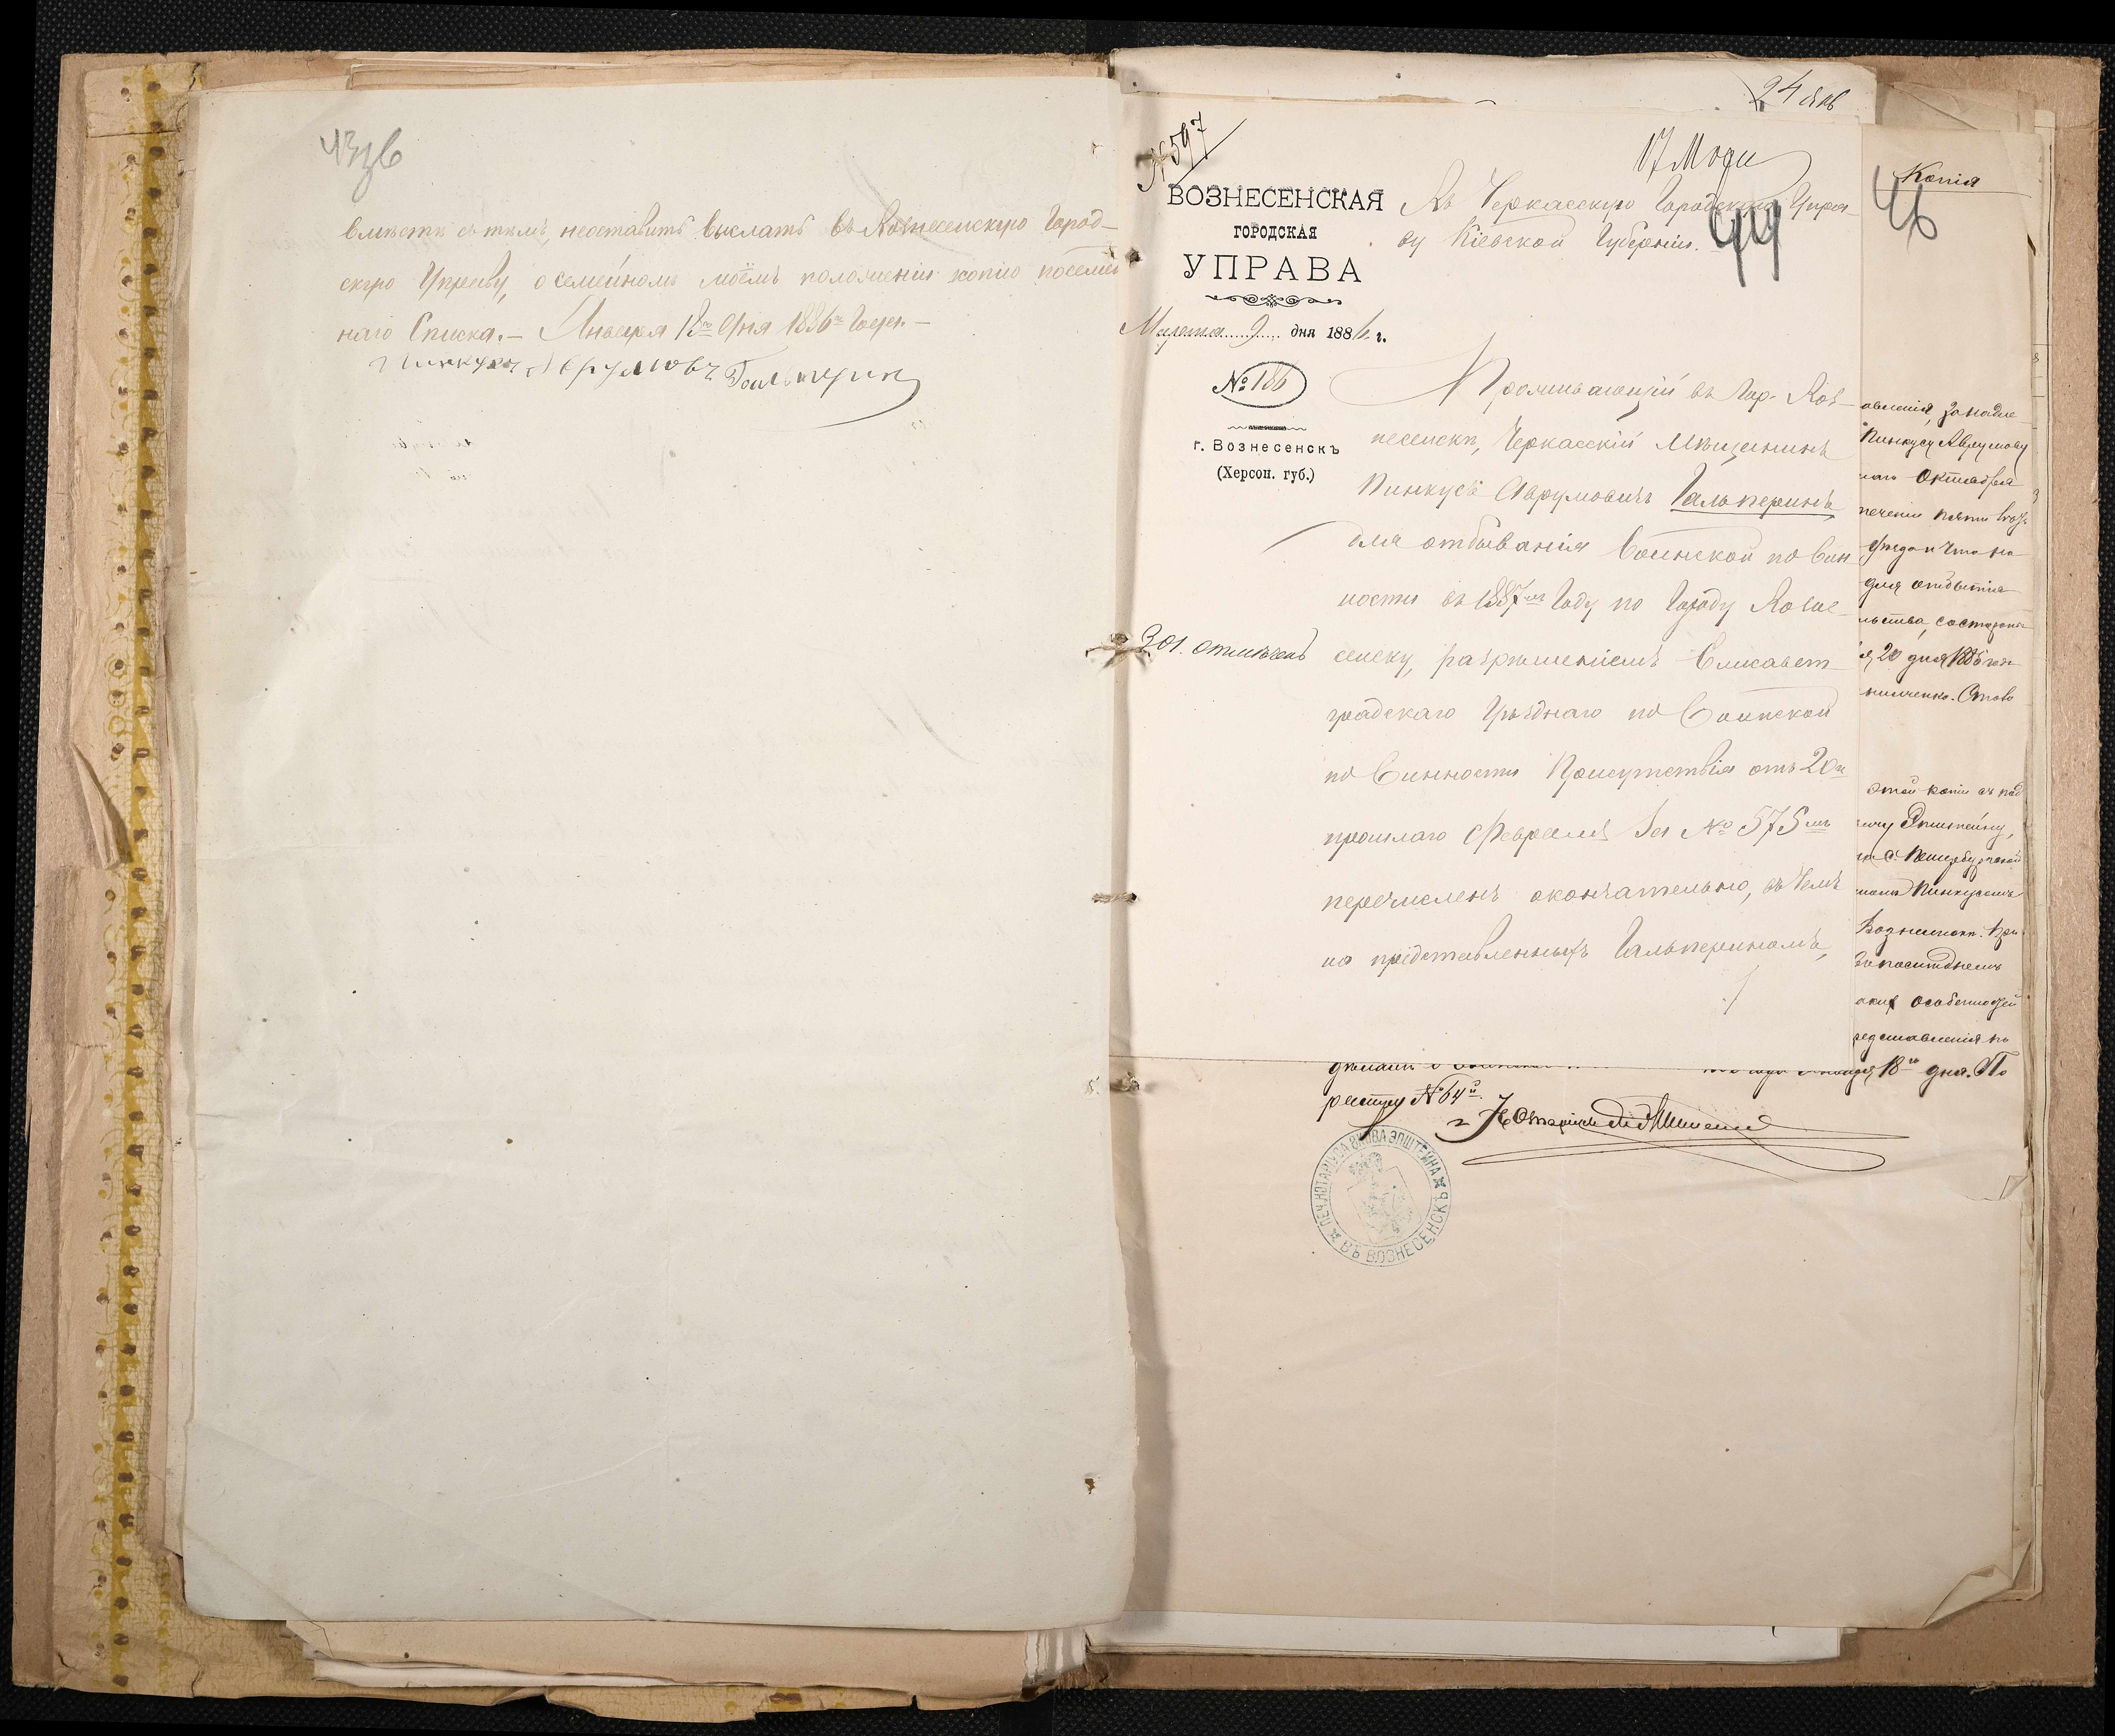 43зв
вместе съ темъ, неоставить выслать въ Вознесенскую Город-
скую Управу, о семейномъ моёмъ положеніи копію посемей
наго Списка. – Января 18го дня 1886го Года. –
Пинкусъ Аврумовъ Гальперин
24 янв
№597
17 Мар
ВОЗНЕСЕНСКАЯ
ГОРОДСКАЯ
УПРАВА
Марта 9 дня 1886 г.
№ 186
г. Вознесенскъ
(Херсон. губ.)
301. отмѣченъ
Въ Черкасскую Городскую Упра-
ву Кіевской Губерніи.
44
Проживающій въ Гор. Воз-
несенскѣ, Черкасскій Мѣщанинъ
Пинкусъ Аврумовичъ Гальперинъ
для отбыванія Воинской повин-
ности въ 1887мъ Году по Городу Возне-
сенску, разрѣшеніемъ Елисавет-
градскаго Уѣзднаго по Воинской
повинности Присутствія отъ 20го
прошлаго Февраля за № 575мъ
перечисленъ окончательно, въ чемъ
на представленныхъ Гальпериномъ,
Копія
46
авленія, за надле
Пинкусу Аврумову
наго Октября
течении пяти
что на
для отбытія
льства,
я, 20 дня 1885 года
Этой копіи съ под
Эпштейну,
Пинкусомъ
Вознесенск.
особенностей
редставленія по
дѣламъ о 18го дня. По
реестру №64й.
Нотаріусъ
ПЕЧ. НОТАРІУСА ЯКОВА ЭПШТЕЙНА ВЪ ВОЗНЕСЕНСКѢ